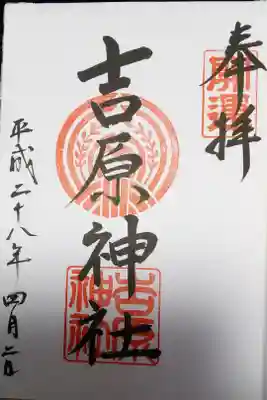 奉拝
開運
吉原神社
吉原神社
平成二十八年四月二日